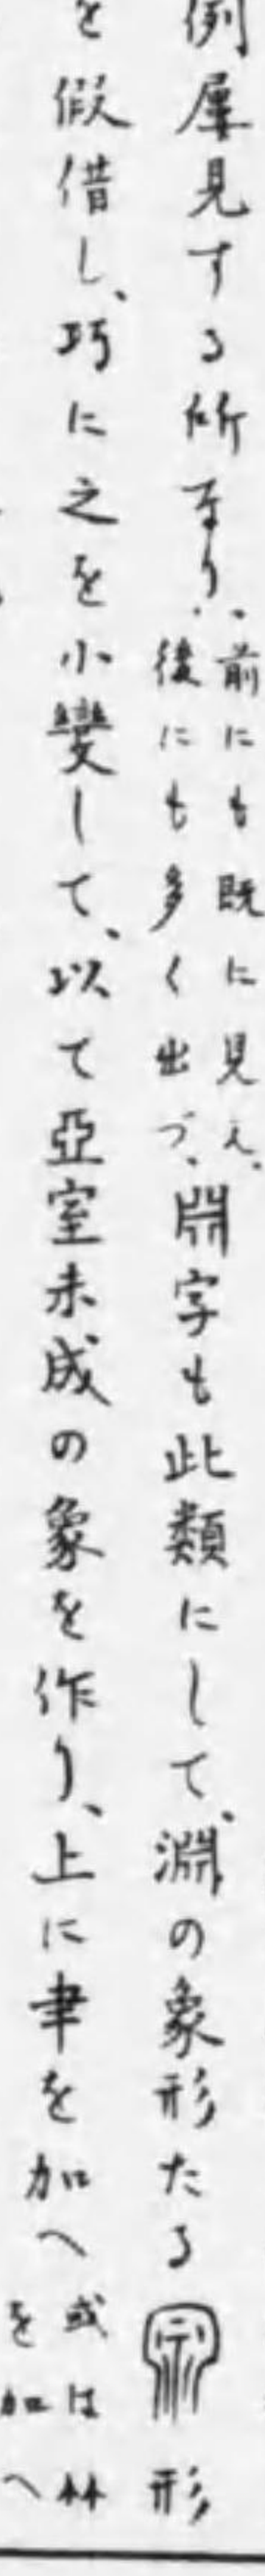 例屢見する所なり。
前にも既に見え、
後にも多く出づ、
𣶒字も此類にして、淵の象形たる
形
を假借し、巧に之を小變して、以て亞室未成の象を作り、上に聿を加へ
或は𣏟
を加へ